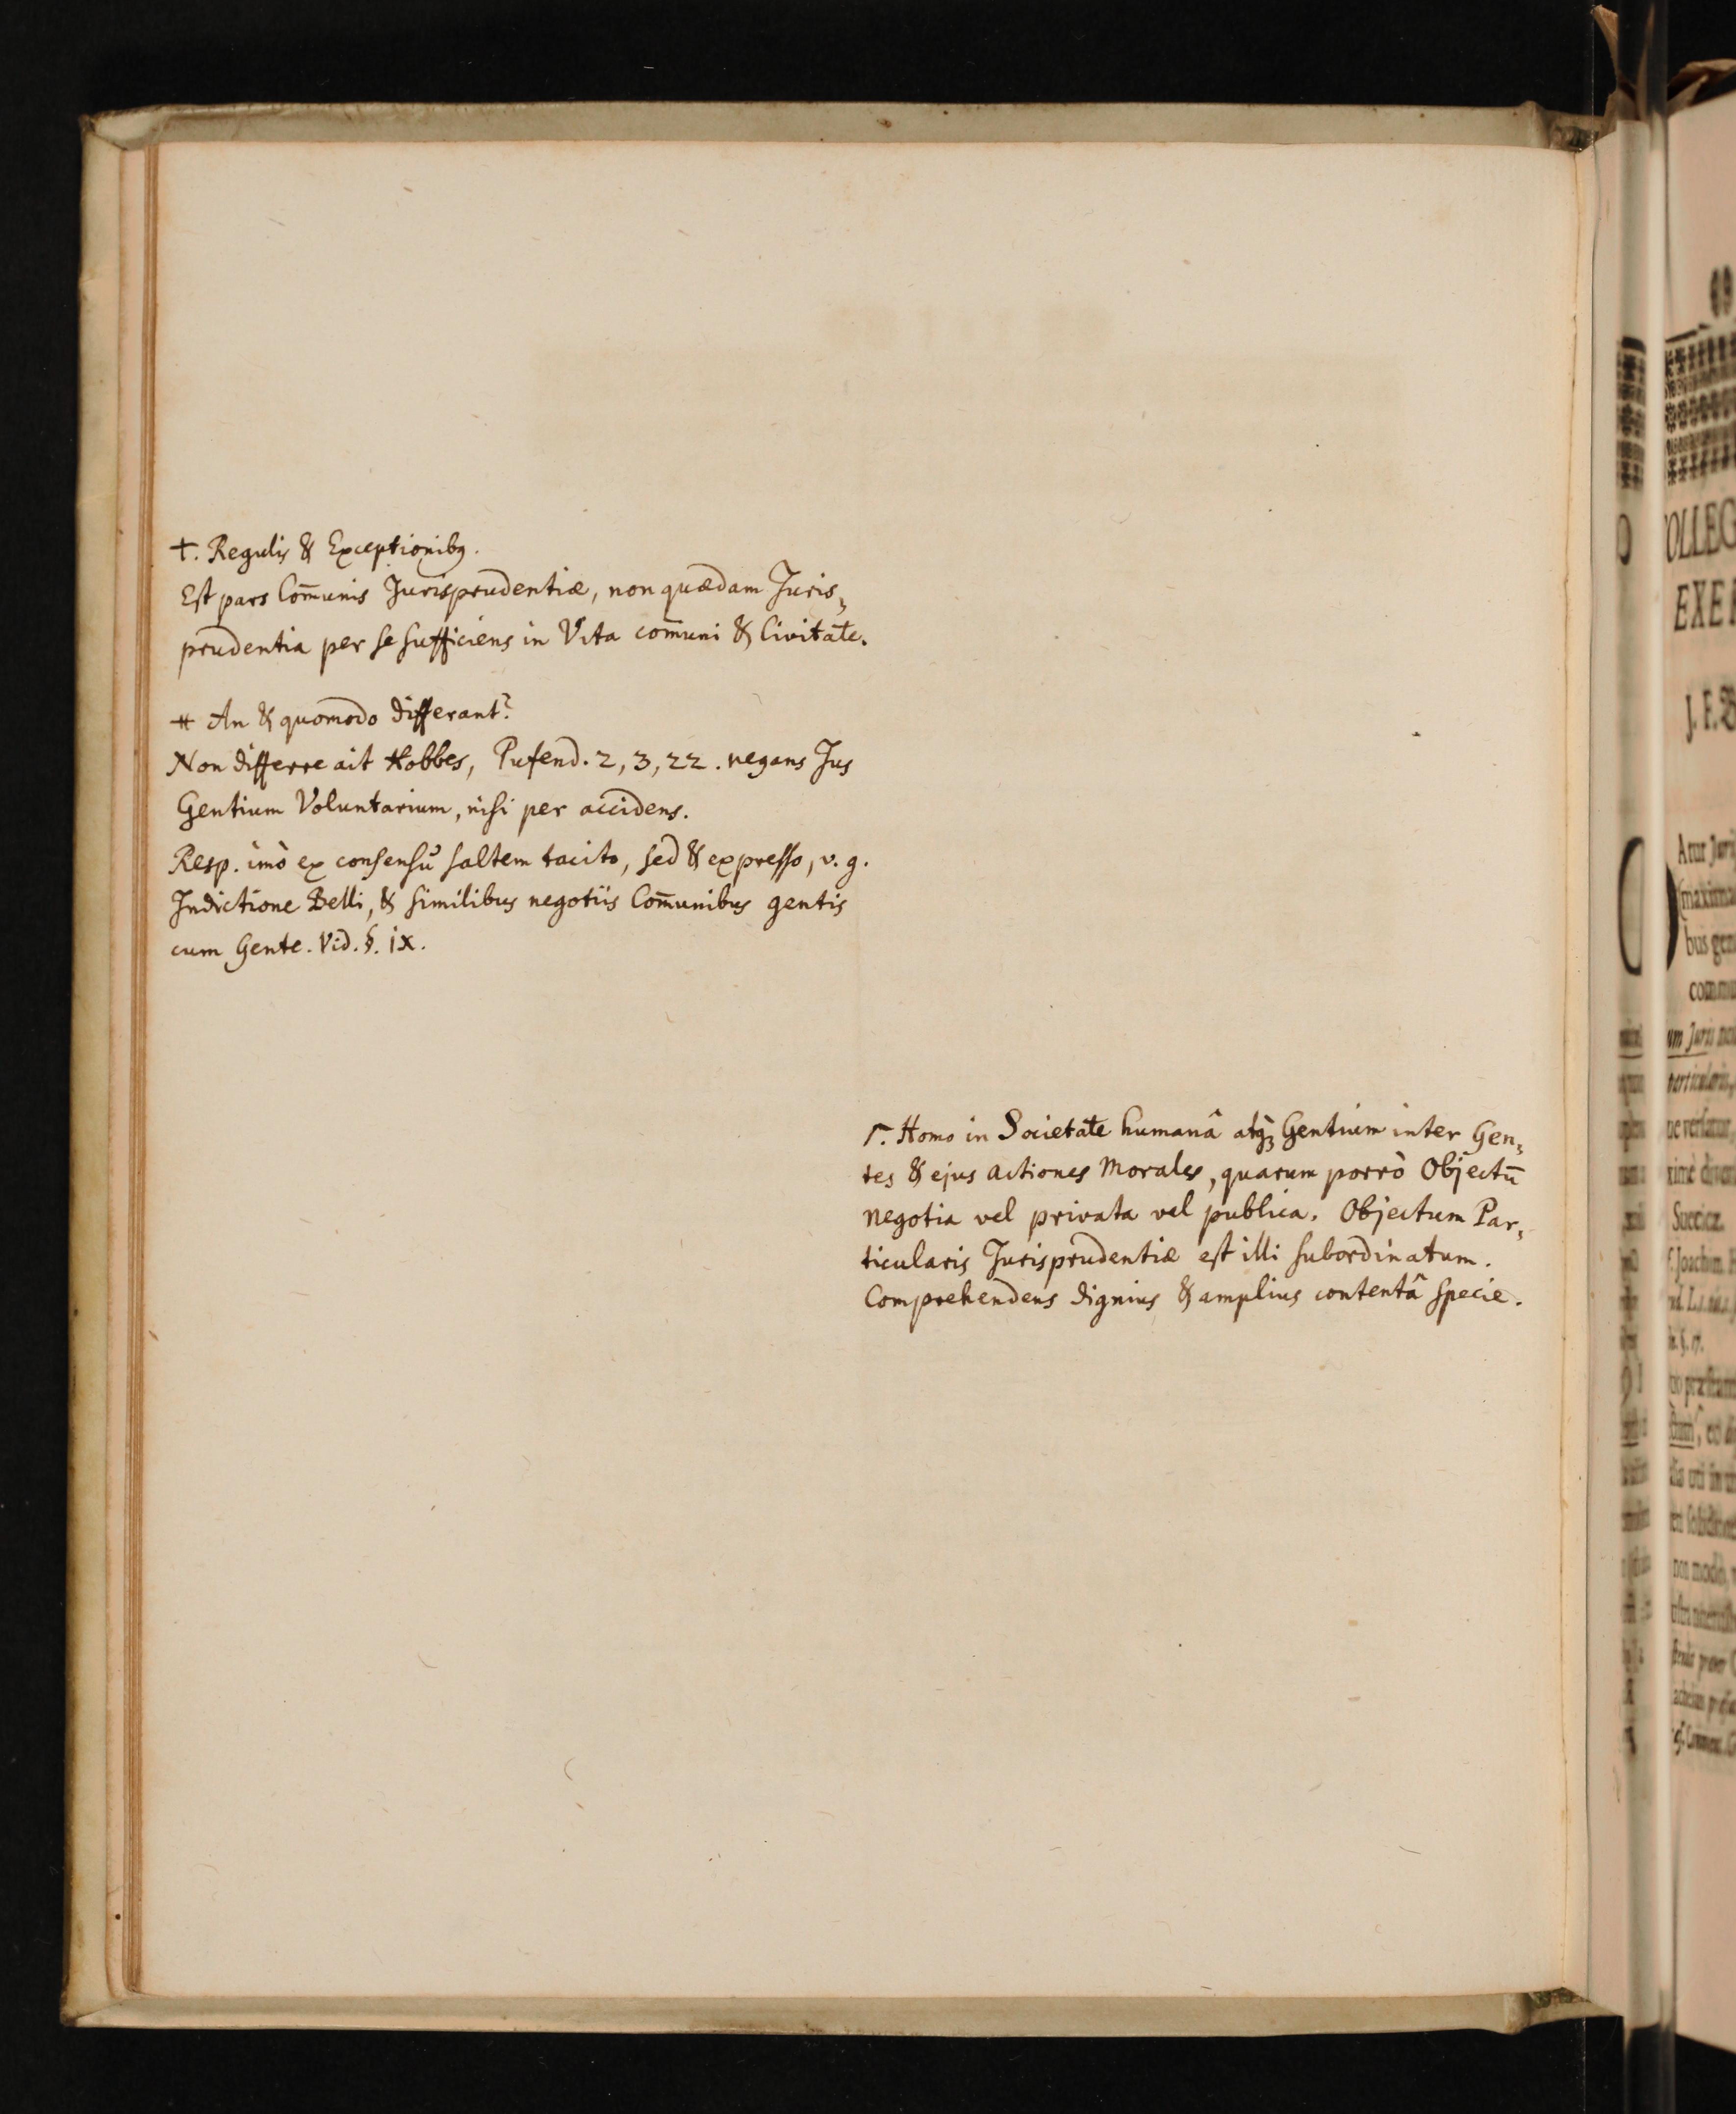 †. Regulis & Exceptionibꝰ.
Est pars Com̄unis Jurisprudentiæ, non quædam Juris„
prudentia per se sufficiens in Vita com̄uni & Civitate.
# An & quomodo differant?
Non differre ait Hobbes, Pufend. 2, 3, 22. negans Jus
Gentium Voluntarium, nisi per accidens.
Resp. imò ex consensu saltem tacito, sed & expresso, v. g.
Indictione Belli, & similibus negotiis Com̄unibus gentis
cum Gente. Vid. §. ix.
Γ. Homo in Societate humanâ atq̃ꝫ Gentium inter Gen„
tes & ejus actiones Morales, quarum porrò Objectū
negotia vel privata vel publica. Objectum Par„
ticularis Jurisprudentiæ est illi subordinatum.
Comprehendens dignius & amplius contentâ specie.
OLLEG
EXE
J. F.
Atur Juri
maxima
bus gen
commu
um Juris
Sueciæ.
Joachim. H
non modò